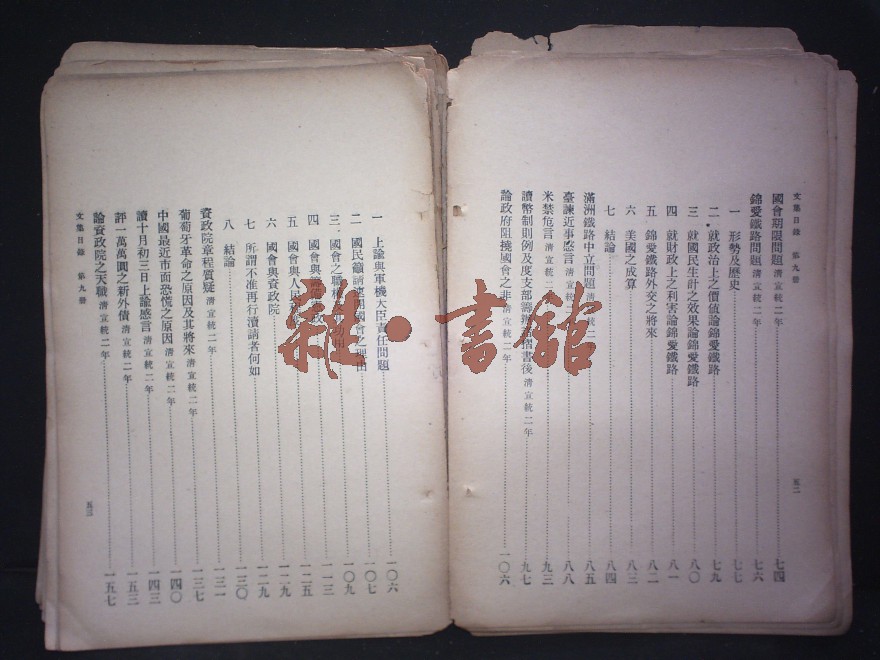 文集目錄 第九册 五二
國會期限問題 清宣統二年 七四
錦愛鐵路問題 清宣統二年 七六
一 形勢及歷史 七七
二 就政治上之價値論錦愛鐵路 七九
三 就國民生計之效果論錦愛鐵路 八〇
四 就財政上之利害論錦愛鐵路 八一
五 錦愛鐵路外交之將來 八二
六 美國之成算 八三
七 結論 八四
滿洲鐵路中立問題 清宣統二年 八五
臺諫近事感言 清宣統二年 八八
米禁危言 清宣統二年 九三
讀幣制則例及度支部籌辦 摺書後 清宣統二年 九七
論政府阻撓國會之非 清宣統二年 一〇六
一 上諭與軍機大臣責任問題 一〇六
二 國民籲請 國會之理由 一〇七
三 國會之職權 一〇九
四 國會與 政 一一三
五 國會與人民 一二五
六 國會與資政院 一二九
七 所謂不准再行瀆請者何如 一二九
八 結論 一三〇
資政院章程質疑 清宣統二年 一三一
葡萄牙革命之原因及其將來 清宣統二年 一三七
中國最近市面恐慌之原因 清宣統二年 一四〇
讀十月初三日上諭感言 清宣統二年 一四三
評一萬萬圓之新外債 清宣統二年 一五三
論資政院之天職 清宣統二年 一五七
文集目錄 第九册 五三
雜·書館